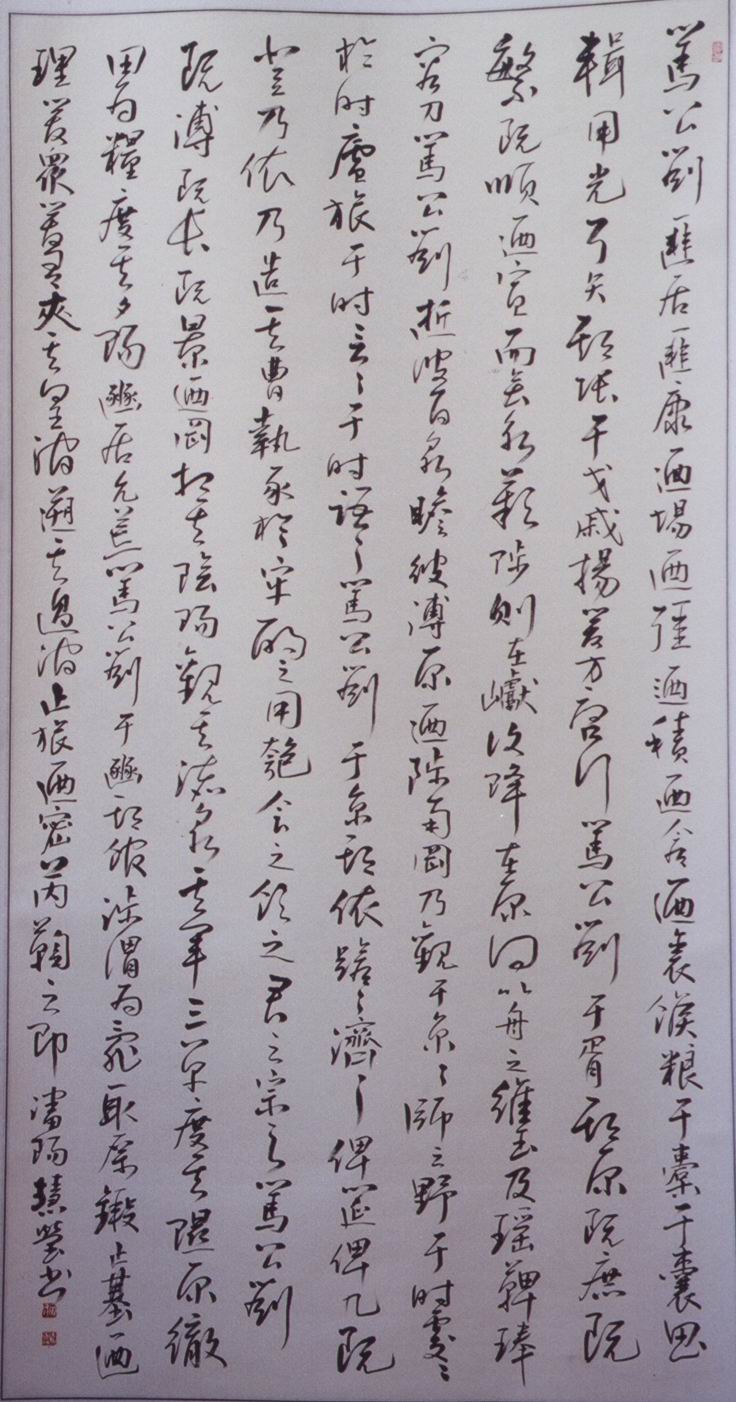 篤公劉匪居匪康迺場迺疆迺積迺倉迺裹餱粮于橐于囊思
輯用光弓矢斯張干戈戚揚爰方啓行篤公劉于胥斯原既庶既
繁既順迺宣而無永歎陟則在巘復降在原何以舟之維玉及瑤鞞琫
容刀篤公劉逝彼百泉瞻彼溥原迺陟南岡乃觀于京々師之野于時處々
於時廬旅于時言々于時語々篤公劉于京斯依蹌々濟々俾筵俾几既
登乃依乃造其曹執豕於牢酌之用匏食之飲之君之宗之篤公劉
既溥既長既景迺岡相其陰陽觀其流泉其軍三單度其隰原徹
田為糧度其夕陽豳居允荒篤公劉于豳斯館涉渭為亂取厲鍛止基迺
理爰衆爰有夾其皇澗遡其過澗止旅迺密芮鞫之即 瀋陽慧瑩書